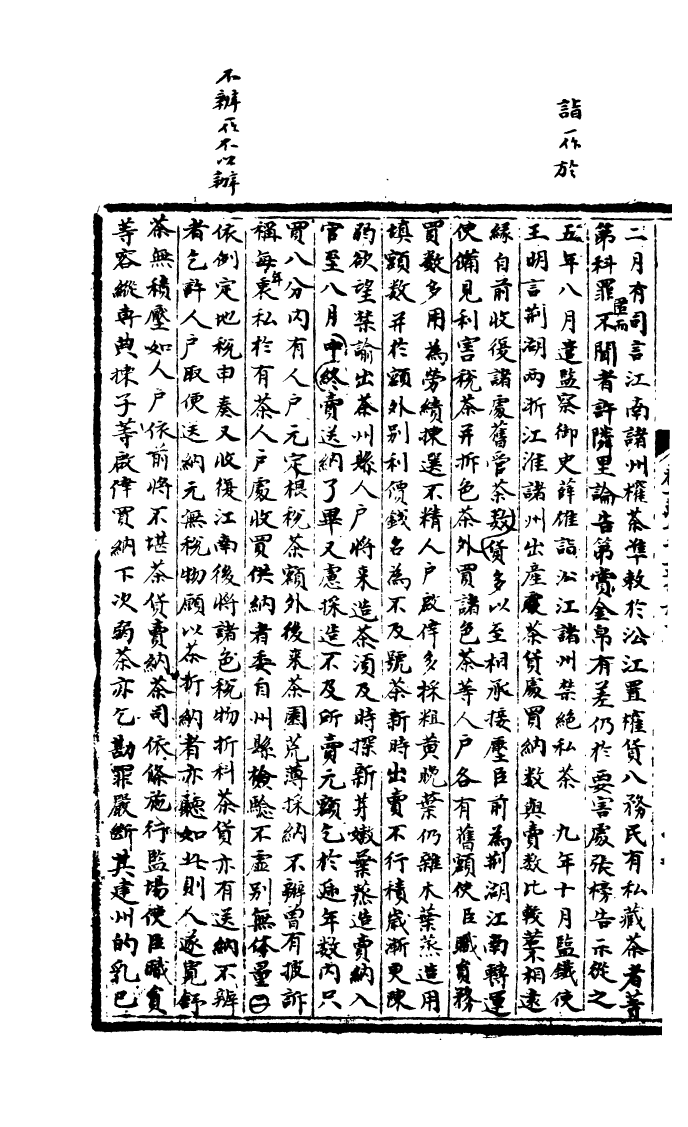 詣一作於
不辦一作不以辦
二月有司言江南諸州榷茶準敕於沿江置榷貨八務民有私藏茶者等
第科罪匿而不聞者許隣里論告第賞金帛有差仍於要害處張榜告示從之
五年八月遣監察御史薛雄詣沿江諸州禁絶私茶 九年十月監鐵使
王明言荆湖兩浙江淮諸州出産茶貨處買納数與賣数比較葉不相遠
緣自前收復諸處舊管茶数貨多以至相承接壓臣前為荆湖江南轉運
使備見利害稅茶并折色茶外買諸色茶等人户各有舊額使臣職負務
買数多用為勞績揀選不精人户啟倖多採粗黄晚葉仍雜木葉蒸造用
填額数并於額外別利價錢名為不及號茶新時出賣不行積歲漸更陳
弱欲望禁諭出茶州縣人户將来造茶須及時探新芽嫩葉蒸造賣納入
官至八月中終賣送納了畢又慮採造不及所賣元額乞於逐年数内只
買八分内有人户元定根稅茶額外後来茶園荒薄採納不辦曾有披訴
稱每年裹私於有茶人户處收買供納者委自州縣檢騐不虛别無体量
依例定地稅申奏又收復江南後將諸色稅物折科茶貨亦有送納不辦
者乞許人户取便送納元無稅物願以茶折納者亦聽如此則人遂寛舒
茶無積壓如人户依前將不堪茶貨賣納茶司依條施行監場使臣職負
等容縱専典揀子等啟倖買納下次弱茶亦乞勘罪嚴断其建州的乳巴